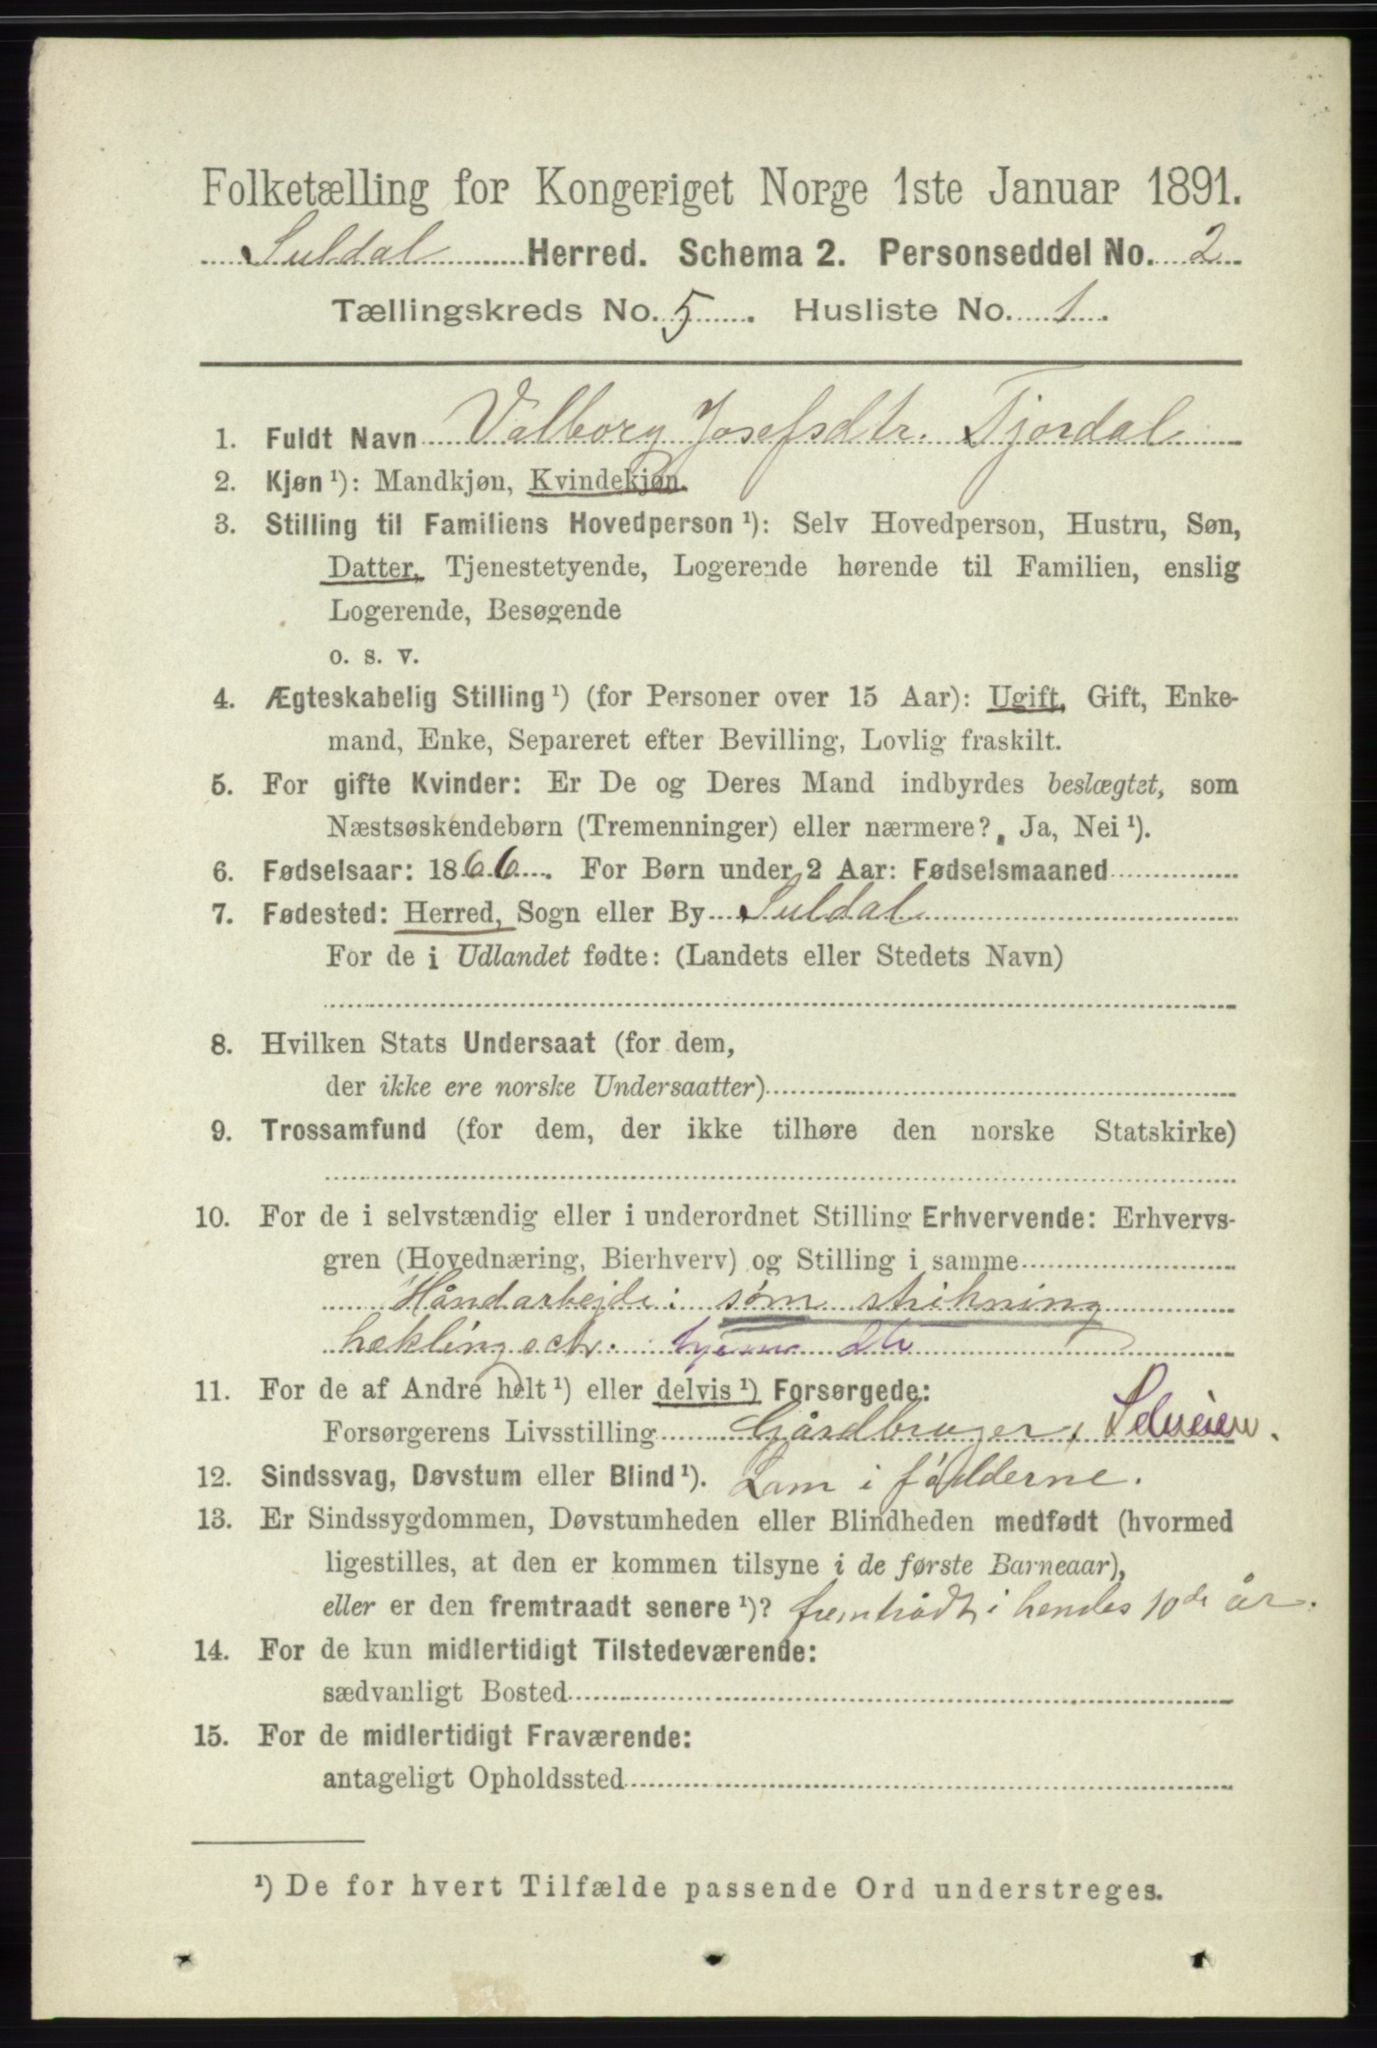 Folketælling for Kongeriget Norge 1ste Januar 1891.
Suldal Herred. Schema 2. Personseddel No. 2
Tællingskreds No. 5. Husliste No. 1.
1. Fuldt Navn Valborg Josefsdtr. Fjordal
2. Kjøn ¹): Mandkjøn, Kvindekjøn.
3. Stilling til Familiens Hovedperson ¹): Selv Hovedperson, Hustru, Søn,
Datter, Tjenestetyende, Logerende hørende til Familien, enslig
Logerende, Besøgende
o. s. v.
4. Ægteskabelig Stilling ¹) (for Personer over 15 Aar): Ugift, Gift, Enke-
mand, Enke, Separeret efter Bevilling, Lovlig fraskilt.
5. For gifte Kvinder: Er De og Deres Mand indbyrdes beslægtet, som
Næstsøskendebørn (Tremenninger) eller nærmere? Ja, Nei ¹).
6. Fødselsaar: 1866. For Børn under 2 Aar: Fødselsmaaned
7. Fødested: Herred, Sogn eller By Suldal
For de i Udlandet fødte: (Landets eller Stedets Navn)
8. Hvilken Stats Undersaat (for dem,
der ikke ere norske Undersaatter)
9. Trossamfund (for dem, der ikke tilhøre den norske Statskirke)
10. For de i selvstændig eller i underordnet Stilling Erhvervende: Erhvervs-
gren (Hovednæring, Bierhverv) og Stilling i samme
Håndarbejde: søm strikning
hekling ectr. hjemme dtr
11. For de af Andre helt ¹) eller delvis ¹) Forsørgede:
Forsørgerens Livsstilling Gårdbruger, Selveier.
12. Sindssvag, Døvstum eller Blind ¹). Lam i fødderne.
13. Er Sindssygdommen, Døvstumheden eller Blindheden medfødt (hvormed
ligestilles, at den er kommen tilsyne i de første Barneaar),
eller er den fremtraadt senere ¹)? fremtrådt i hendes 10de år.
14. For de kun midlertidigt Tilstedeværende:
sædvanligt Bosted
15. For de midlertidigt Fraværende:
antageligt Opholdssted
¹) De for hvert Tilfælde passende Ord understreges.